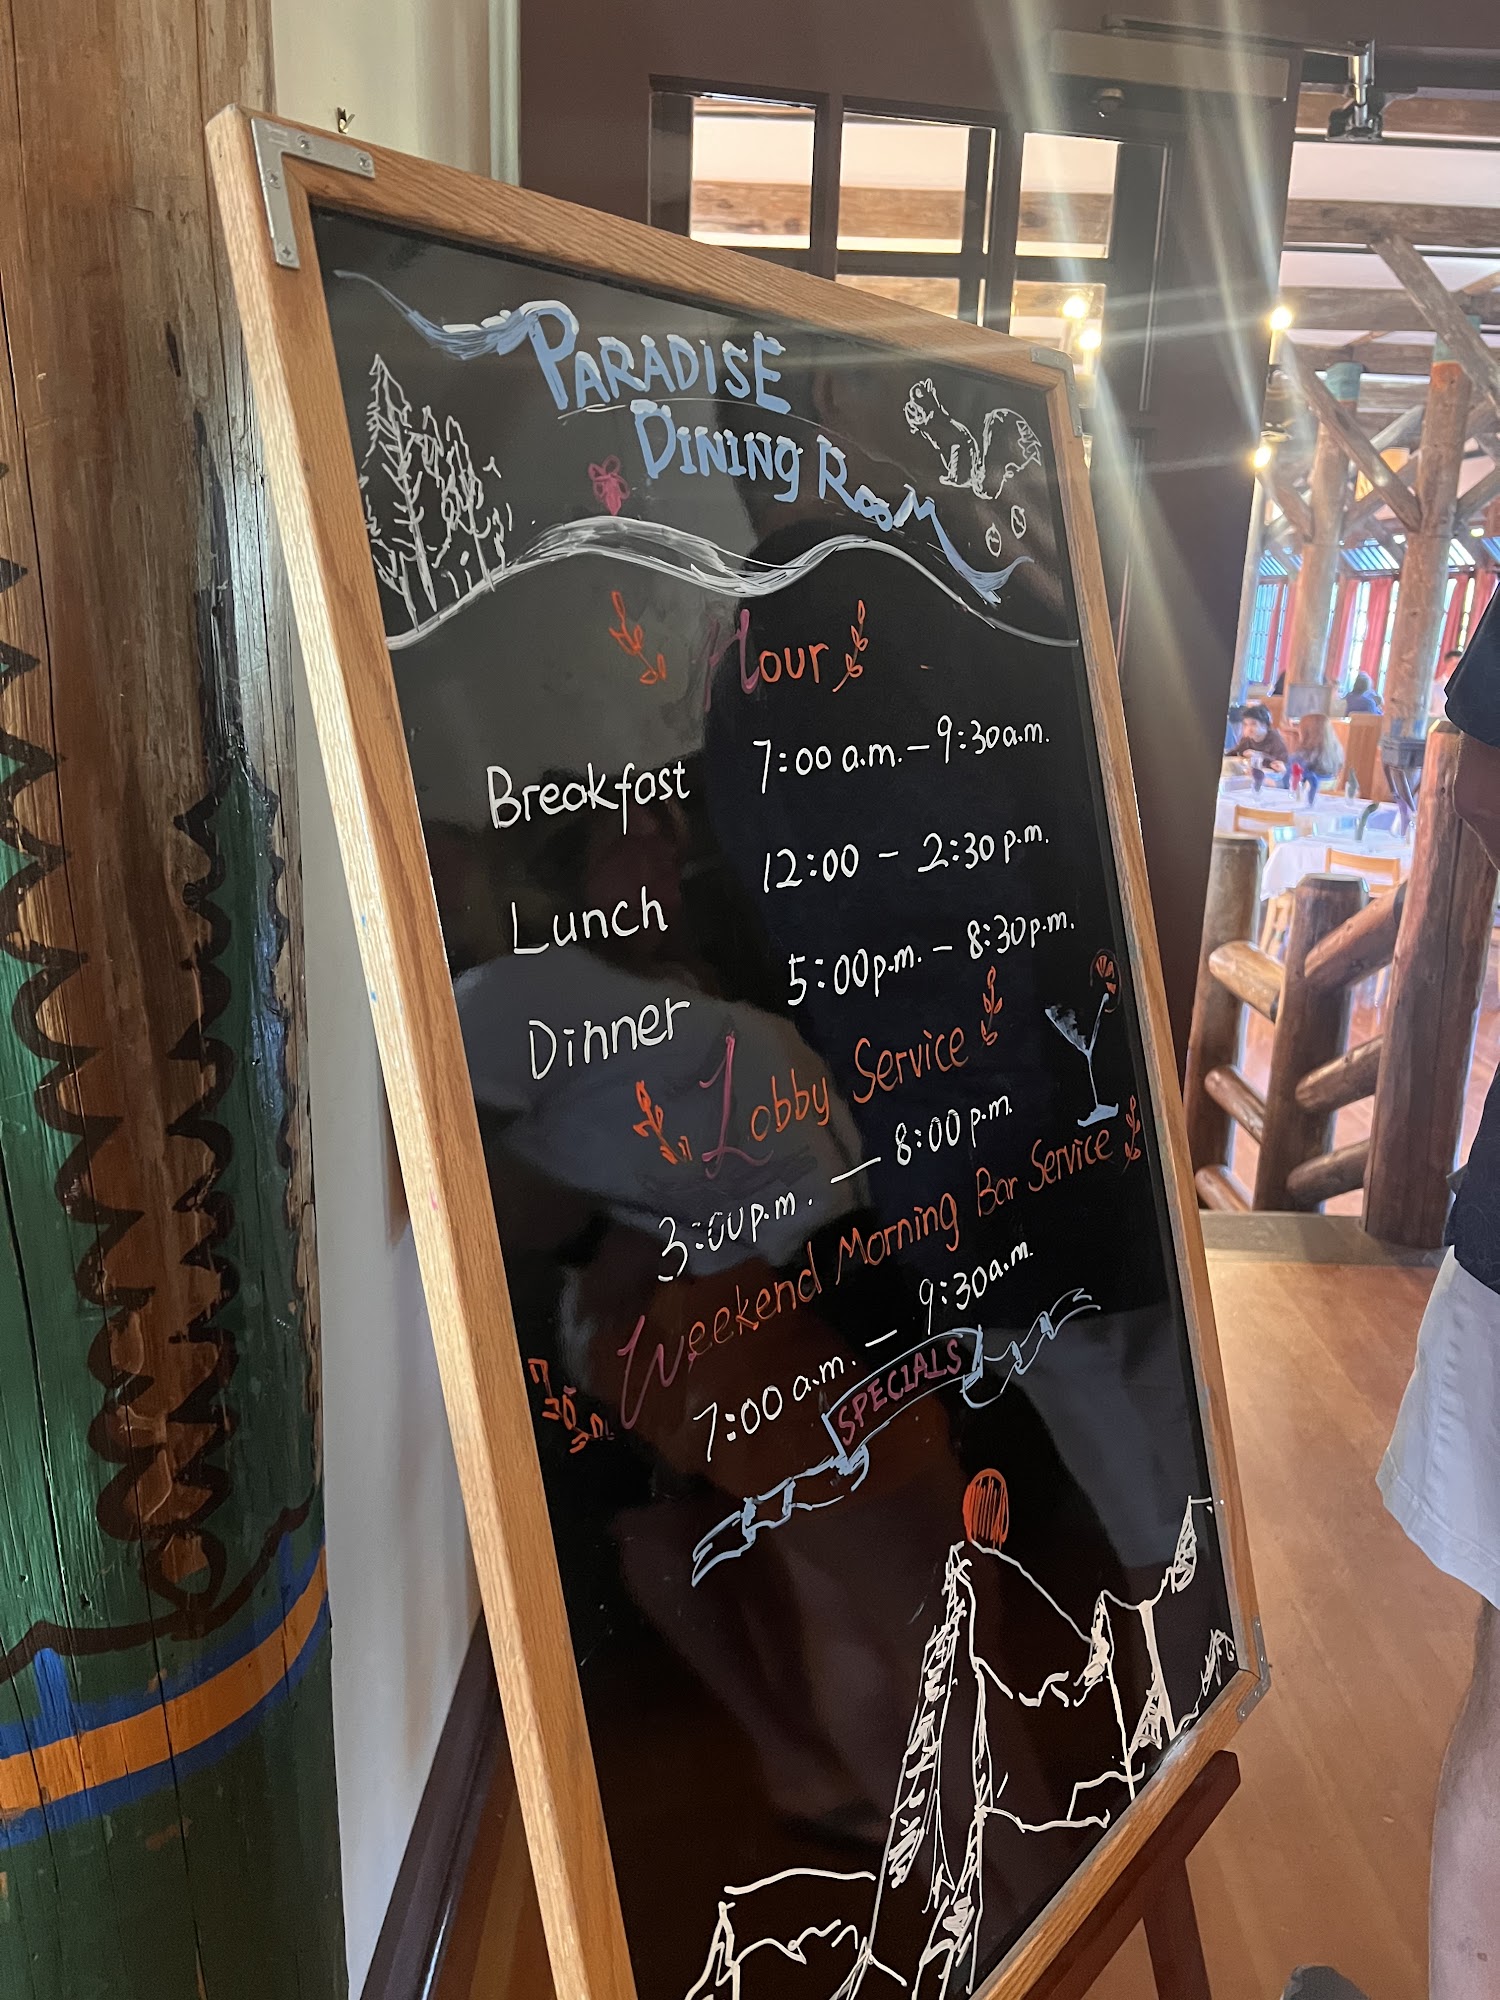 PARADISE
DINING ROOM
Hour
Breakfast 7:00 a.m. – 9:30 a.m.
Lunch 12:00 – 2:30 p.m.
Dinner 5:00 p.m. – 8:30 p.m.
Lobby Service
3:00 p.m. – 8:00 p.m.
Weekend Morning Bar Service
7:00 a.m. – 9:30 a.m.
SPECIALS